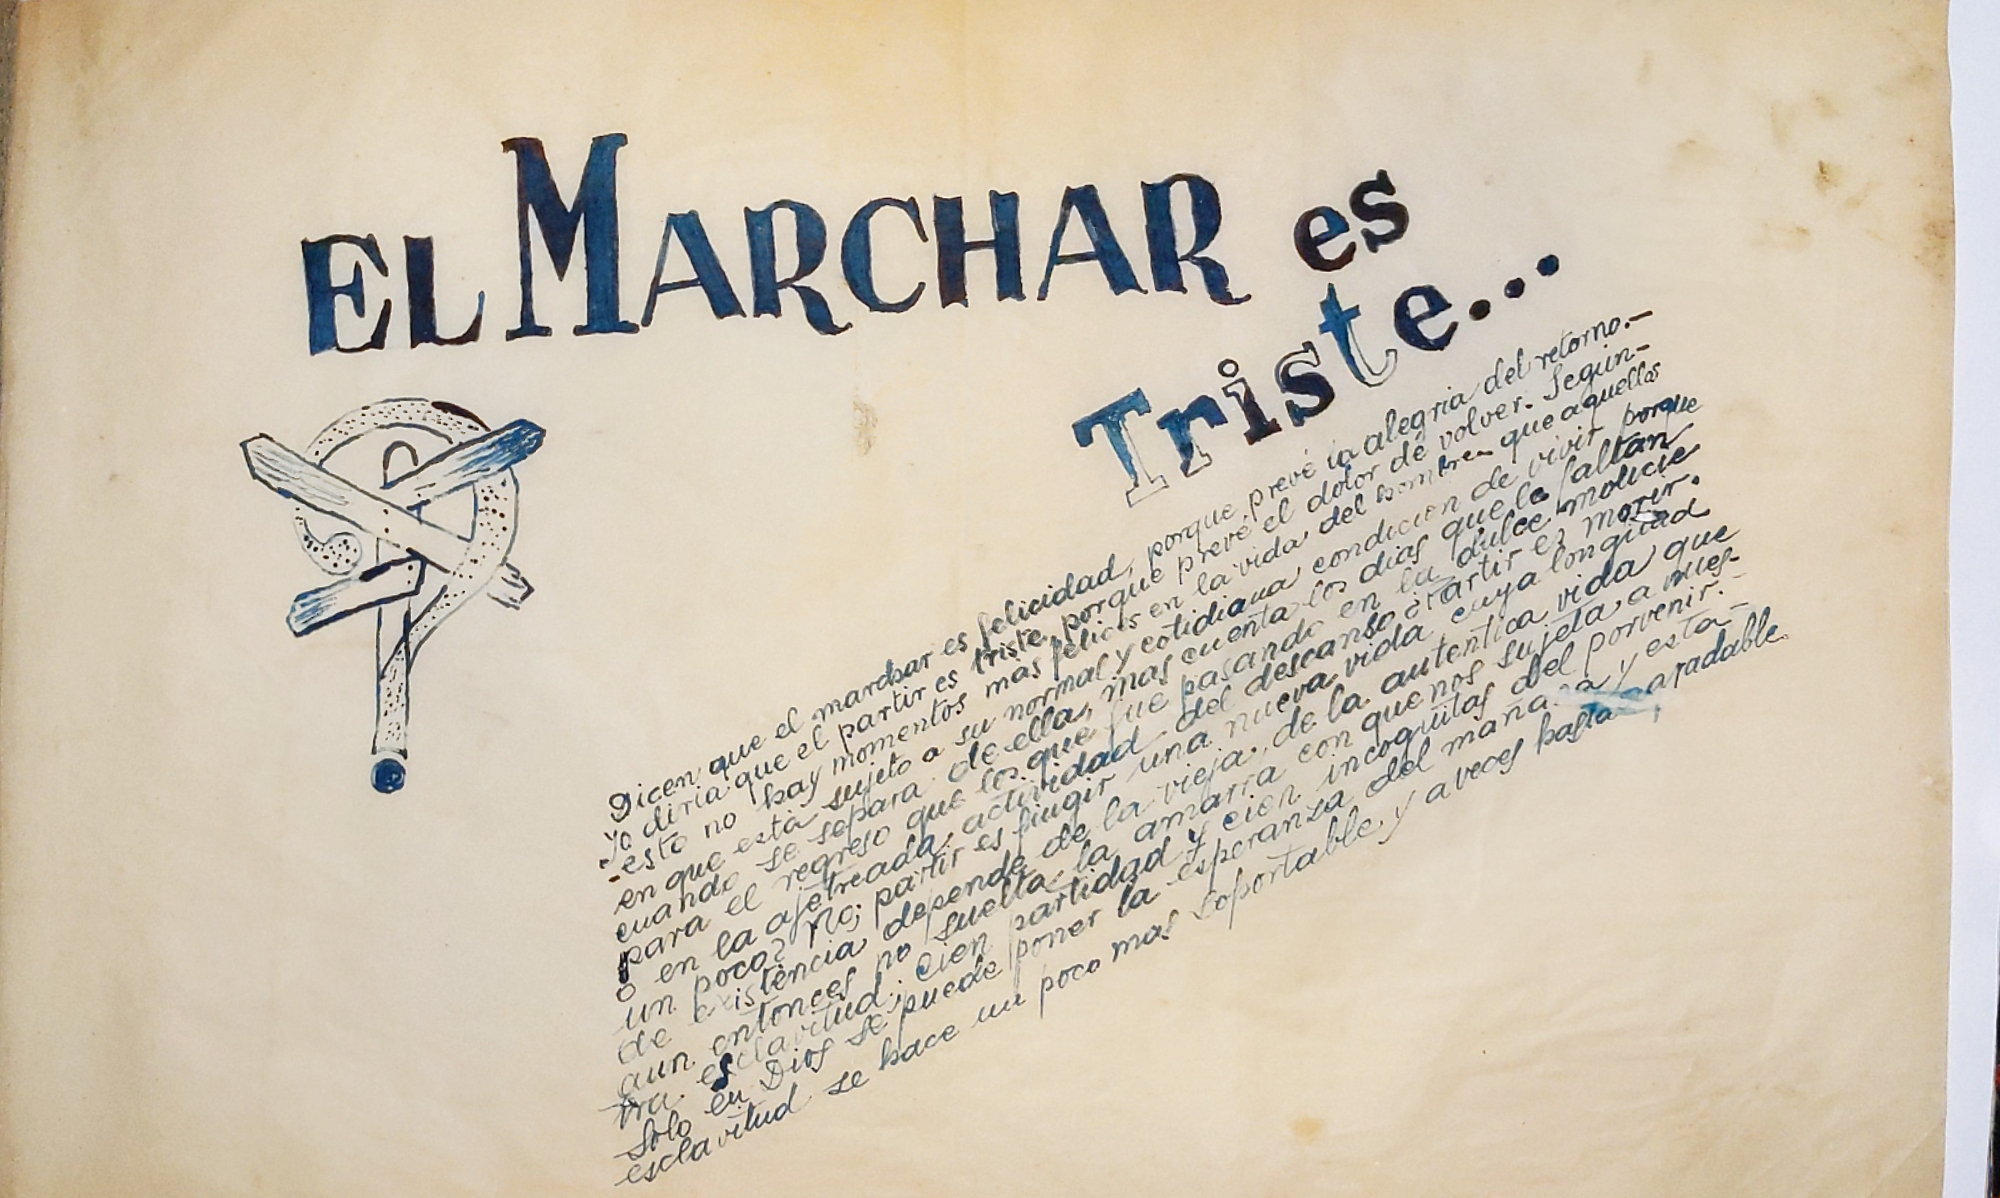 EL MARCHAR es
Triste...
Dicen que el marchar es felicidad, porque prevé la alegria del retorno.-
yo diria que el partir es triste, porque prevé el dolor de volver. Segun-
-esto no hay momentos mas felices en la vida del hombre que aquellos
en que está sujeto a su normal y cotidiana condicion de vivir porque
cuando se separa de ella, mas cuenta los dias que le faltan
para el regreso que los que fue pasando en la dulce molicie
o en la ajetreada actividad del descanso ¿Partir es morir
un poco? No; partir es fingir una nueva vida cuya longitud
de existencia depende de la vieja, de la autentica vida que
aun entonces no suelta la amarra con que nos sujeta a nues-
tra esclavitud; cien partidad y cien incognitas del porvenir.
Solo en Dios se puede poner la esperanza del mañana y esta
esclavitud se hace un poco mas soportable, y a veces hasta